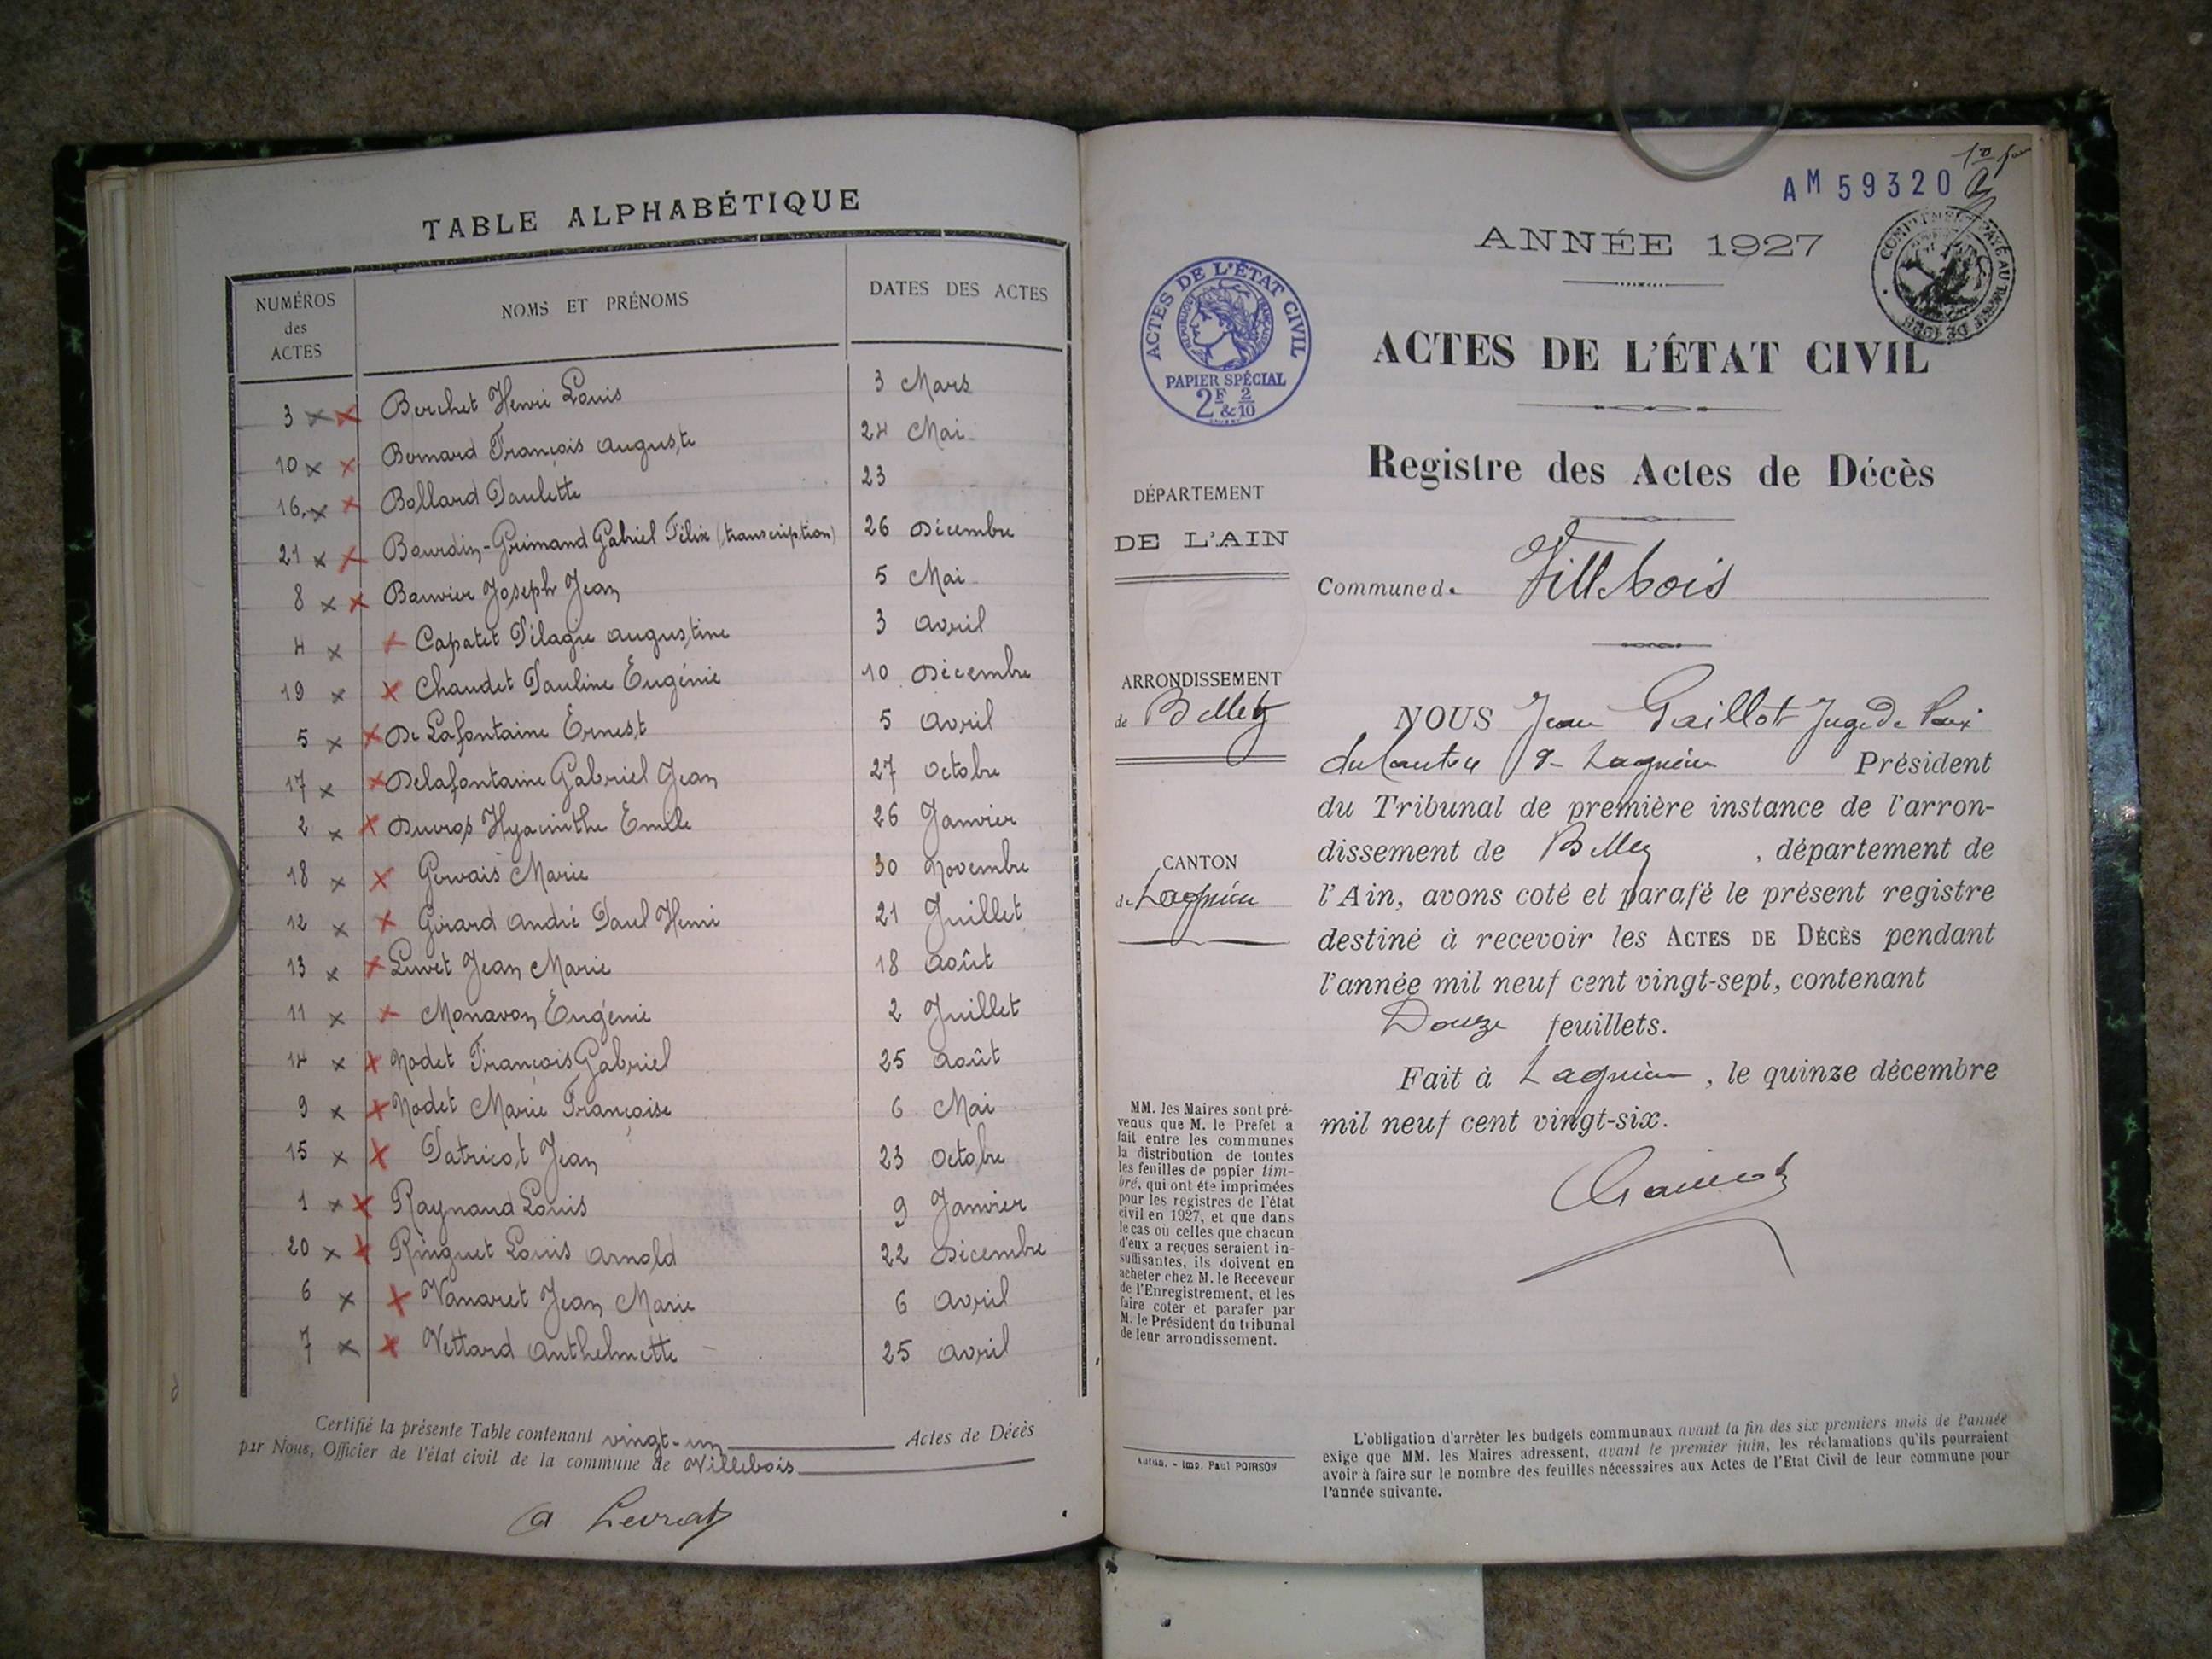 TABLE ALPHABÉTIQUE
NUMÉROS des ACTES NOMS ET PRÉNOMS DATES DES ACTES
3 x x Berchet Henri Louis 3 Mars
10 x x Bernard François Auguste 24 Mai
16. x x Bollard Paulette 23
21 x x Bourdin-Grimand Gabriel Félix (transcription) 26 Décembre
8 x x Bouvier Joseph Jean 5 Mai
4 x x Capatet Pélagie Augustine 3 Avril
19 x x Chaudet Pauline Eugénie 10 Décembre
5 x x De Lafontaine Ernest 5 Avril
17 x x Delafontaine Gabriel Jean 27 Octobre
2 x x Ducros Hyacinthe Emile 26 Janvier
18 x x Gervais Marie 30 Novembre
12 x x Girard André Paul Henri 21 Juillet
13 x x Luvet Jean Marie 18 Août
11 x x Monavon Eugénie 2 Juillet
14 x x Nodet François Gabriel 25 Août
9 x x Nodet Marie Françoise 6 Mai
15 x x Patricot Jean 23 Octobre
1 x x Raynaud Louis 9 Janvier
20 x x Ringuet Louis Arnold 22 Décembre
6 x x Vanaret Jean Marie 6 Avril
7 x x Vettard Anthelmette 25 Avril
Certifié la présente Table contenant vingt-un Actes de Décès
par Nous, Officier de l'état civil de la commune de Villebois
A Levrat
AM 59320
ANNÉE 1927
ACTES DE L'ÉTAT CIVIL
RÉPUBLIQUE FRANÇAISE
PAPIER SPÉCIAL
2F & 2/10
ACTES DE L'ÉTAT CIVIL
Registre des Actes de Décès
DÉPARTEMENT
DE L'AIN
Commune de Villebois
ARRONDISSEMENT
de Belley
CANTON
de Lagnieu
NOUS Jean Gaillot Juge de Paix
du Canton de Lagnieu Président
du Tribunal de première instance de l'arron-
dissement de Belley, département de
l'Ain, avons coté et parafé le présent registre
destiné à recevoir les ACTES DE DÉCÈS pendant
l'année mil neuf cent vingt-sept, contenant
Douze feuillets.
Fait à Lagnieu, le quinze décembre
mil neuf cent vingt-six.
MM. les Maires sont pré-
venus que M. le Préfet a
fait entre les communes
la distribution de toutes
les feuilles de papier tim-
bré, qui ont été imprimées
pour les registres de l'état
civil en 1927, et que dans
le cas où celles que chacun
d'eux a reçues seraient in-
suffisantes, ils doivent en
acheter chez M. le Receveur
de l'Enregistrement, et les
faire coter et parafer par
M. le Président du tribunal
de leur arrondissement.
Imp. Paul POIRSON
L'obligation d'arrêter les budgets communaux avant la fin des six premiers mois de l'année
exige que MM. les Maires adressent, avant le premier juin, les réclamations qu'ils pourraient
avoir à faire sur le nombre des feuilles nécessaires aux Actes de l'Etat Civil de leur commune pour
l'année suivante.